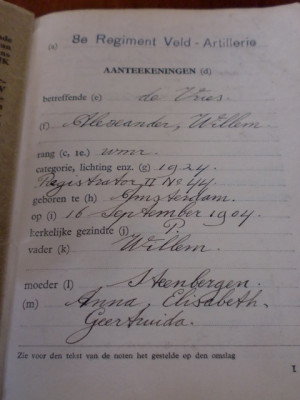 (a) 8e Regiment Veld-Artillerie
AANTEEKENINGEN (d)
betreffende (e) de Vries.
(f) Alexander, Willem.
rang (c, 1e.) wmr.
categorie, lichting enz. (g) 1924.
Registrator II No 44.
geboren te (h) Amsterdam.
op (i) 16 September 1904.
kerkelijke gezindte (j) P.
vader (k) Willem.
moeder (l) Steenbergen.
(m) Anna, Elisabeth.
Geertruida.
Zie voor den tekst van de noten het gestelde op den omslag
1